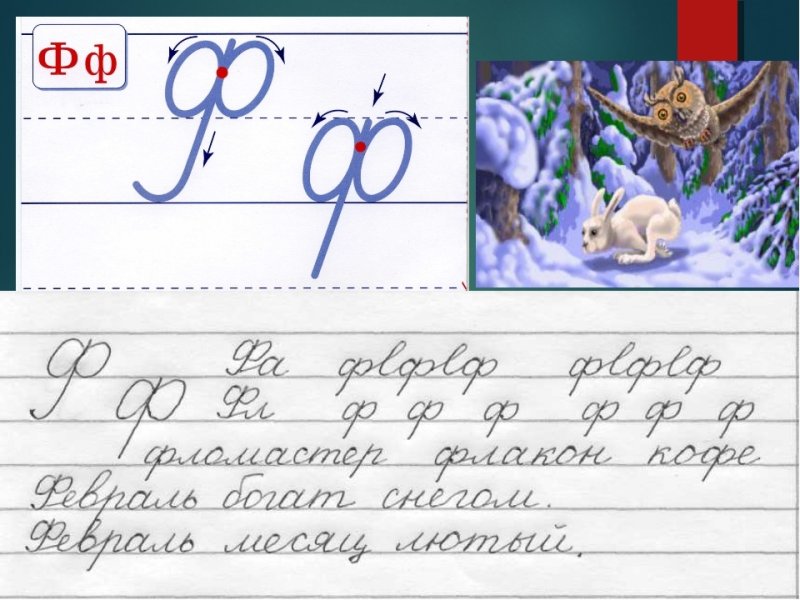 Ф ф
Ф ф
Ф Фа ф ф ф ф ф ф
ф Фл ф ф ф ф ф ф
фломастер флакон кофе
Февраль богат снегом.
Февраль месяц лютый.